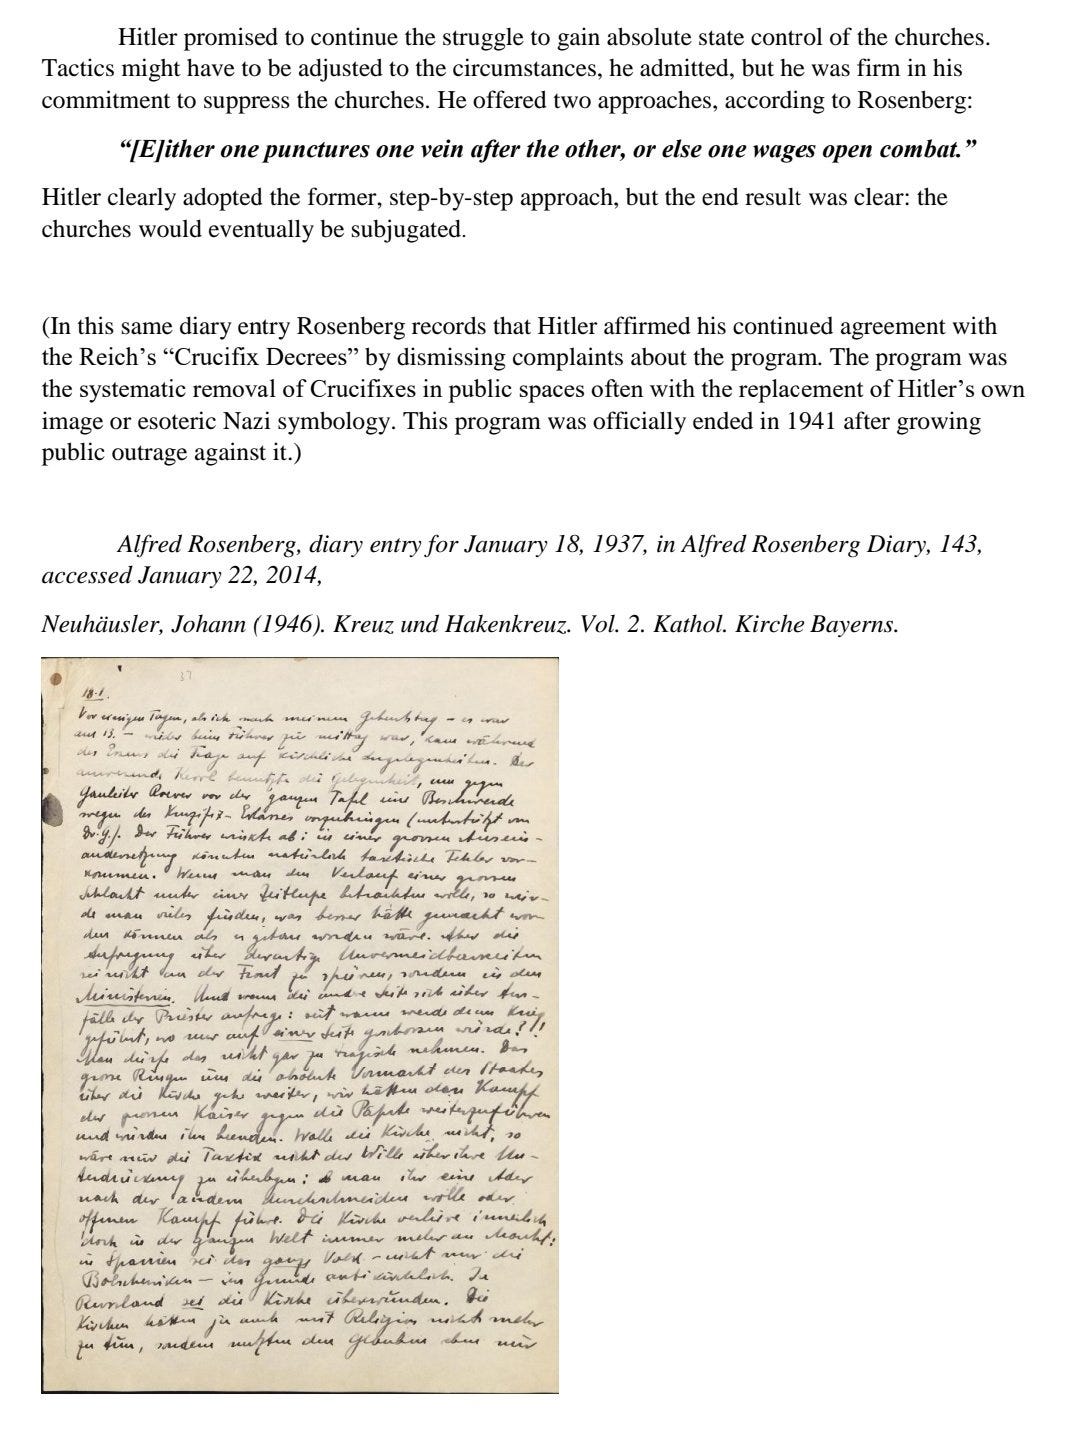 Hitler promised to continue the struggle to gain absolute state control of the churches.
Tactics might have to be adjusted to the circumstances, he admitted, but he was firm in his
commitment to suppress the churches. He offered two approaches, according to Rosenberg:
“[E]ither one punctures one vein after the other, or else one wages open combat.”
Hitler clearly adopted the former, step-by-step approach, but the end result was clear: the
churches would eventually be subjugated.
(In this same diary entry Rosenberg records that Hitler affirmed his continued agreement with
the Reich’s “Crucifix Decrees” by dismissing complaints about the program. The program was
the systematic removal of Crucifixes in public spaces often with the replacement of Hitler’s own
image or esoteric Nazi symbology. This program was officially ended in 1941 after growing
public outrage against it.)
Alfred Rosenberg, diary entry for January 18, 1937, in Alfred Rosenberg Diary, 143,
accessed January 22, 2014,
Neuhäusler, Johann (1946). Kreuz und Hakenkreuz. Vol. 2. Kathol. Kirche Bayerns.
37
18.1.
Vor einigen Tagen, als ich nach meinem Geburtstag – es war
am 13. – wieder beim Führer zu mittag war, kam während
des Essens die Frage auf kirchliche Angelegenheiten. Der
anwesende Kerrl benutzte die Gelegenheit, um gegen
Gauleiter Roever vor der ganzen Tafel eine Beschwerde
wegen des Kruzifix-Erlasses vorzubringen (unterstützt von
Dr. G.). Der Führer winkte ab: in einer grossen Ausein-
andersetzung könnten natürlich taktische Fehler vor-
kommen. Wenn man den Verlauf einer grossen
Schlacht unter einer Zeitlupe betrachten wolle, so wür-
de man vieles finden, was besser hätte gemacht wor-
den können als es getan worden wäre. Aber die
Aufregung über derartige Unvermeidbarkeiten
sei nicht an der Front zu spüren, sondern in den
Ministerien. Und wenn die andre Seite sich über Aus-
fälle der Priester aufrege: seit wann werde denn Krieg
geführt, wo nur auf einer Seite geschossen würde?!!
Man dürfe das nicht gar zu tragisch nehmen. Das
grosse Ringen um die absolute Vormacht des Staates
über die Kirche gehe weiter, wir hätten den Kampf
der grossen Kaiser gegen die Päpste weiterzuführen
und würden ihn beenden. Wolle die Kirche nicht, so
wäre nur die Taktik nicht der Wille über ihre Un-
terdrückung zu überlegen: ob man ihr eine Ader
nach der andern durchschneiden wolle oder
offenen Kampf führe. Die Kirche verliere innerlich
doch in der ganzen Welt immer mehr an Macht:
in Spanien sei das ganze Volk – nicht nur die
Bolschewiken – im Grunde antikirchlich. In
Russland sei die Kirche überwunden. Die
Kirchen hätten ja auch mit Religion nichts mehr
zu tun, sondern nutzten den Glauben eben nur